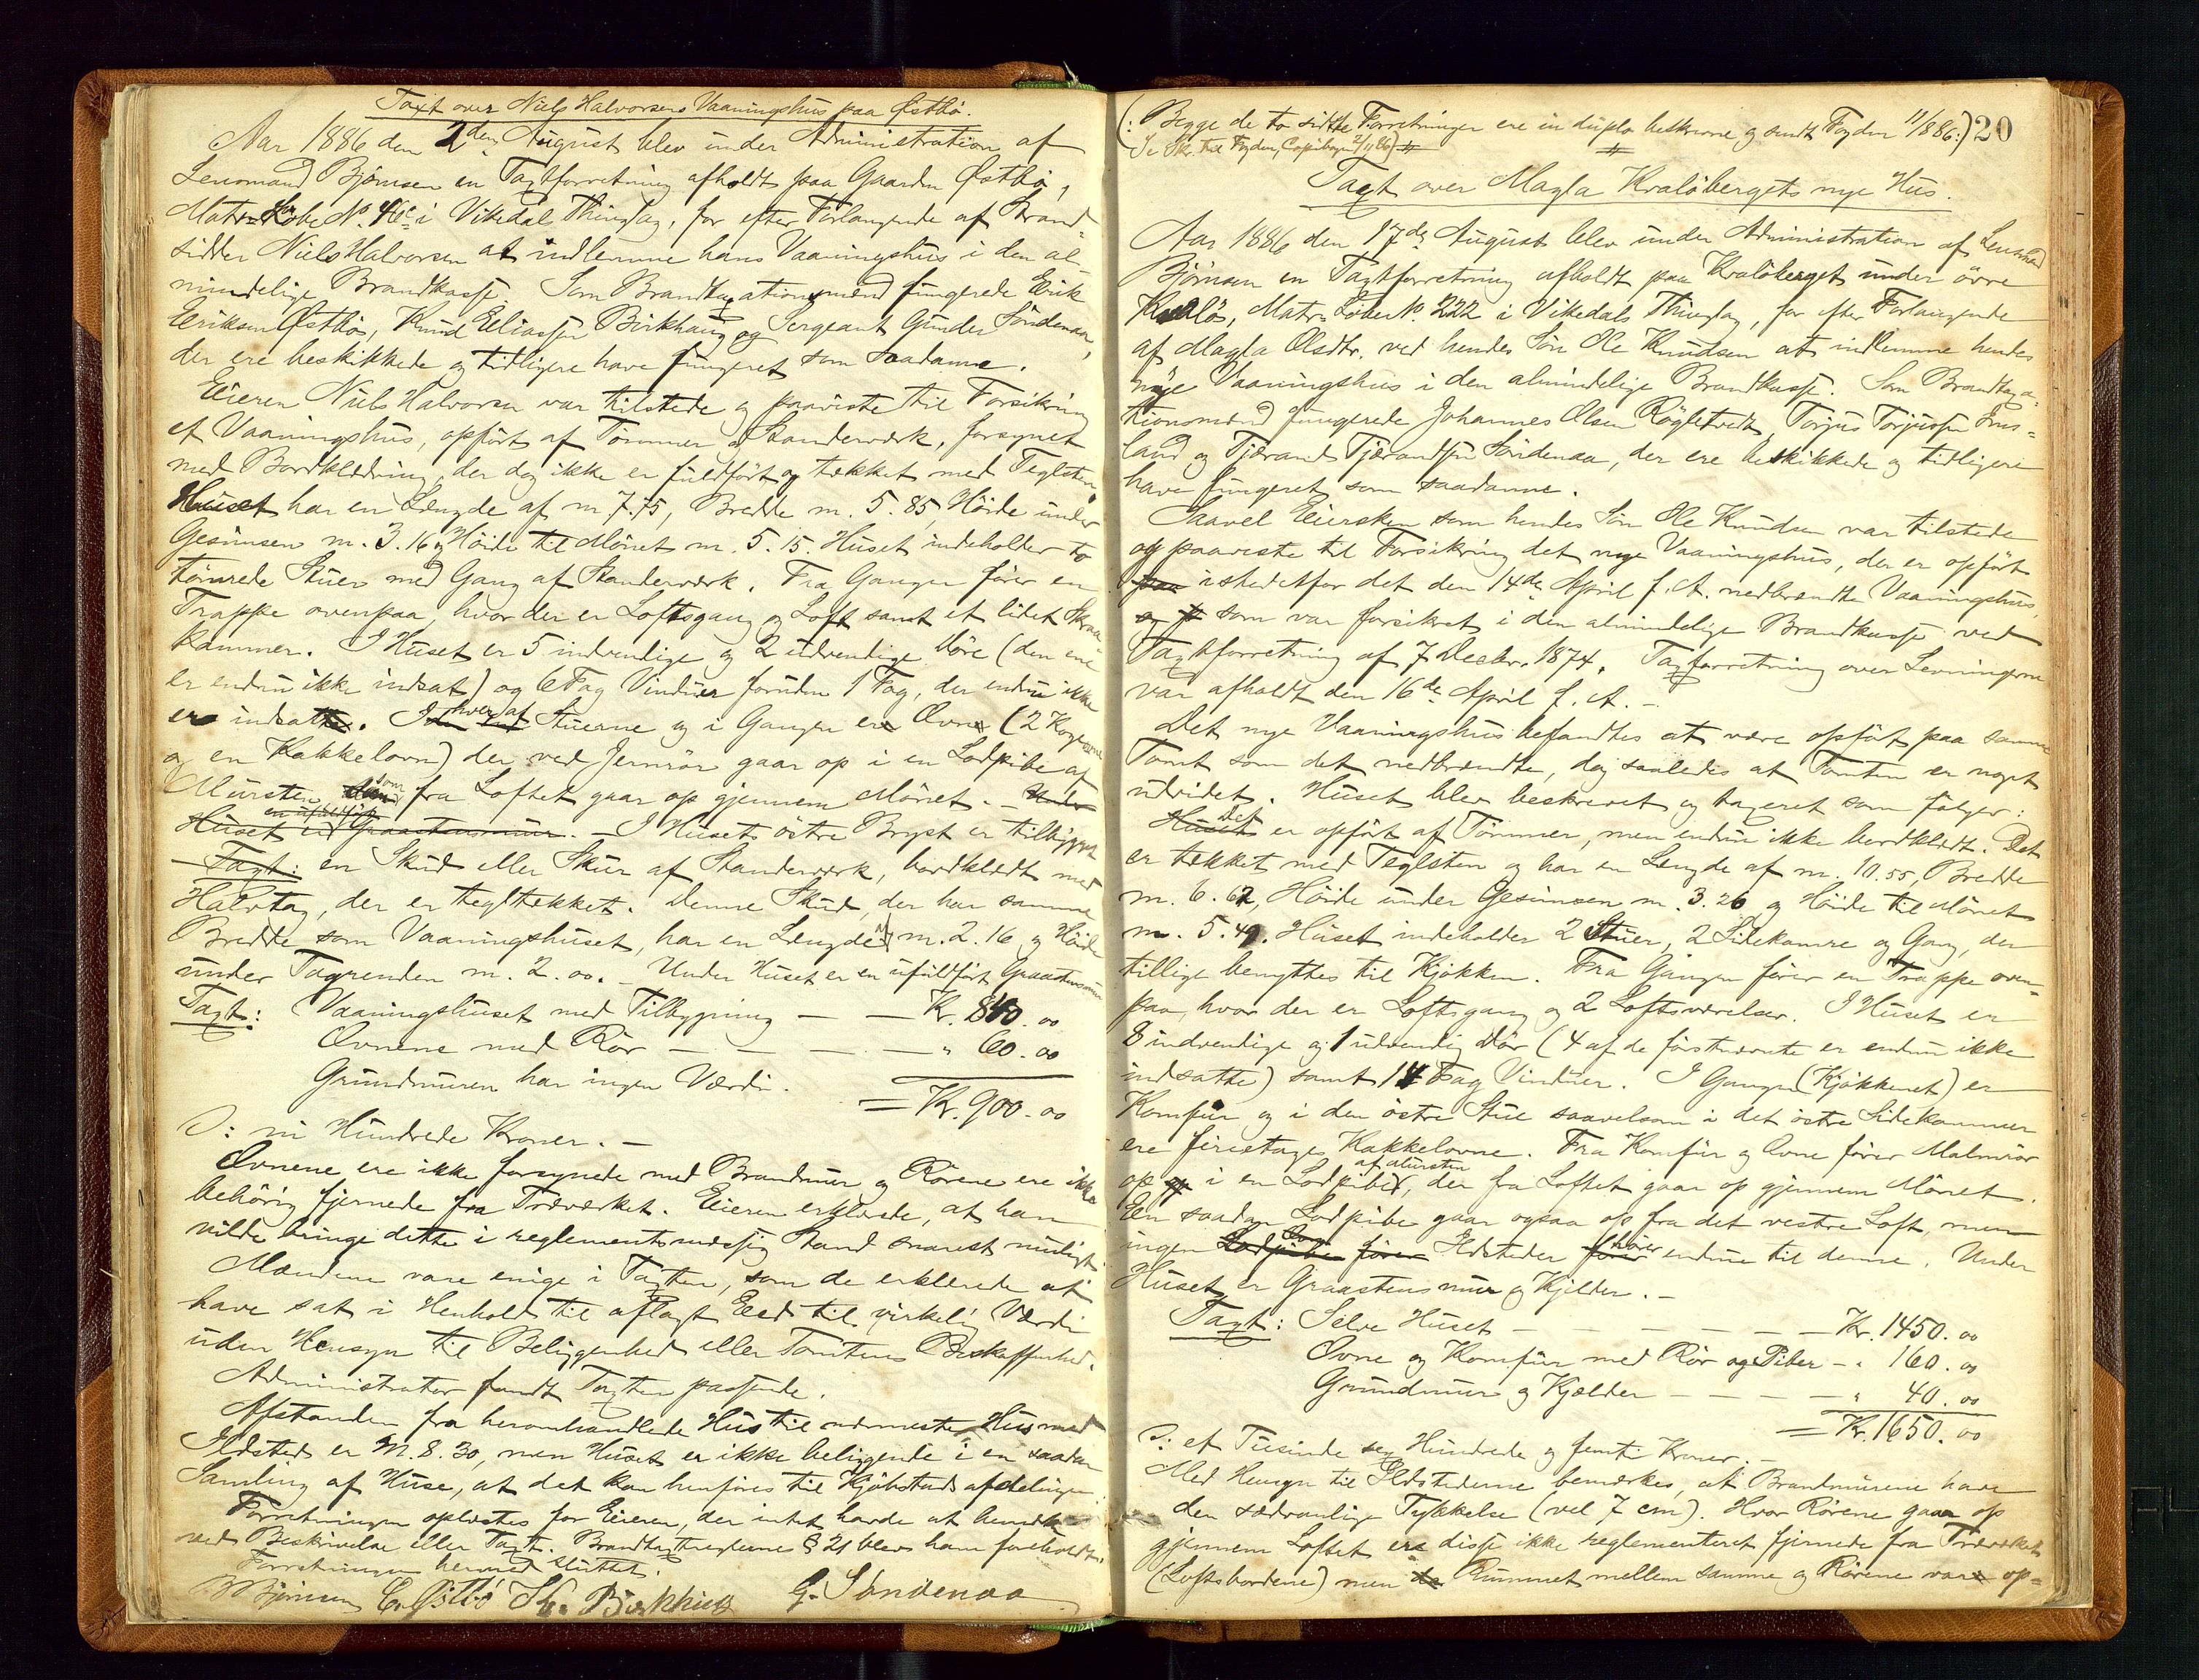 Taxt over Niels Halvorsens Vaaningshus paa Østbö.
Aar 1886 den 2den August blev under Administration af
Lensmand Björnsen en Taxtforretning afholdt paa Gaarden Østbö,
Matr. Löbe No. 40c i Vikedal Thinglag, for efter Forlangende af Brand-
sidder Niels Halvorsen at indlemme hans Vaaningshus i den al-
mindelige Brandkasse. Som Brandtaxationsmænd fungerede Eirik
Eiriksen Østbö, Knud Eliassen Birkhaug og Sergeant Gunder Söndenaa,
der ere beskikkede og tidligere have fungeret som saadanne.
Eieren Niels Halvorsen var tilstede og paaviste til Forsikring
et Vaaningshus, opfört af Tömmer og Standerværk, forsynet
med Bordklædning, der dog ikke er fuldfört og tækket med Teglsten.
Huset har en Længde af m 7.75, Bredde m. 5.85, Höide under
Gesimsen m. 3.16 og Höide til Mönet m. 5.15. Huset indeholder to
tömrede Stuer med Gang af Standerværk. Fra Gangen förer en
Trappe ovenpaa, hvor der er Loftsgang og Loft samt et lidet Skraa-
kammer. I Huset er 5 indvendige og 2 udvendige Döre (den ene
er endnu ikke indsat) og 6 Fag Vinduer foruden 1 Fag, der endnu ikke
er indsatte. I hver af Stuerne og i Gangen er Ovne (2 Kogeovne
og en Kakkelovn) der ved Jernrör gaar op i en Lodpibe af
Mursten som fra Loftet gaar op gjennem Mönet. - Under
Huset er en ufuldfört Graastensmuur. - I Husets östre Bryst er tilbygget
Taxt: en Skud eller Skur af Standerværk, bordklædt med
Halvtag, der er tegltækket. Denne Skud, der har samme
Bredde som Vaaningshuset, har en Længde af m. 2.16 og Höide
under Tagrenden m. 2.00. - Under Huset er en ufuldfört Graastensmuur
Taxt: Vaaningshuset med Tilbygning — — Kr. 840.00
Ovnene med Rör — — — — " 60.00
Grundmuren har ingen Værdi.
= Kr. 900.00
ɔ: ni Hundrede Kroner. -
Ovnene ere ikke forsynede med Brandmur og Rörene ere ikke
behörig fjernede fra Træværket. Eieren erklærede, at han
vilde bringe dette i reglementsmæssig Stand snarest muligt.
Mændene vare enige i Taxten, som de erklærede at
have sat i Henhold til aflagt Eed til virkelig Værdi
uden Hensyn til Beliggenhed eller Tomtens Beskaffenhed.
Administrator fandt Taxten passende.
Afstanden fra heromhandlede Hus til nærmeste Hus med
Ildsted er M. 8.30, men Huset er ikke beliggende i en saadan
Samling af Huse, at det kan henföres til Kjöbstadsafdelingen.
Forretningen oplæstes for Eieren, der intet havde at bemærke
ved Beskrivelse eller Taxt. Brandtaxtreglerne § 21 blev ham foreholdt.
Forretningen hermed sluttet.
B Björnsen E. Østbö K. Birkhaug G. Söndenaa
(: Begge de to sidste Forretninger ere in duplo beskrevne og sendt Fogden 11/8 86:) 20
Se Skr. til Fogden, Copibogen
Taxt over Magla Kralöbergets nye Hus.
Aar 1886 den 17de August blev under Administration af Lensmand
Björnsen en Taxtforretning afholdt paa Kralöberget under övre
Kralö, Matr. Löbe No 222 i Vikedals Thinglag, for efter Forlangende
af Magla Olsdtr. ved hendes Sön Ole Knudsen at indlemme hendes
nye Vaaningshus i den almindelige Brandkasse. Som Brandtaxa-
tionsmænd fungerede Johannes Olsen Rögletvedt, Torjus Torjusen Ims-
land og Tjærand Tjærandsen Söndenaa, der ere beskikkede og tidligere
have fungeret som saadanne.
Saavel Eiersken som hendes Sön Ole Knudsen var tilstede
og paaviste til Forsikring det nye Vaaningshus, der er opfört
paa istedetfor det den 14de April f. A. nedbrændte Vaaningshus,
og som var forsikret i den almindelige Brandkasse ved
Taxtforretning af 7 Decbr. 1874. Taxforretning over Levningerne
var afholdt den 16de April f. A. -
Det nye Vaaningshus befandtes at være opfört paa samme
Tomt som det nedbrændte, dog saaledes at Tomten er noget
udvidet. Huset blev beskrevet og taxeret som fölger:
Huset Det er opfört af Tömmer, men endnu ikke bordklædt. Det
er tækket med Teglsten og har en Længde af m. 10.55, Bredde
m. 6.62, Höide under Gesimsen m. 3.26 og Höide til Mönet
m. 5.49. Huset indeholder 2 Stuer, 2 Sidekamre og Gang, der
tillige benyttes til Kjökken. Fra Gangen förer en Trappe oven-
paa, hvor der er Loftsgang og 2 Loftsværelser. I Huset er
8 indvendige og 1 udvendig Dör (4 af de förstnævnte er endnu ikke
indsatte) samt 14 Fag Vinduer. I Gangen (Kjökkenet) er
Komfur og i den östre Stue saavelsom i det östre Sidekammer
ere fireetages Kakkelovne. Fra Komfur og Ovne förer Malmrör
op i en Lodpibe af Mursten, der fra Loftet gaar op gjennem Mönet.
En saadan Lodpibe gaar ogsaa op fra det vestre Loft, men
ingen Lodpibe förer Ildsteder hörer endnu til denne. Under
Huset er Graastensmur og Kjelder. -
Taxt: Selve Huset — — — — — Kr. 1450.00
Ovne og Komfur med Rör og Piber — " 160.00
Grundmur og Kjælder — — — — " 40.00
= Kr. 1650.00
ɔ: et Tusinde sex Hundrede og femti Kroner. -
Med Hensyn til Ildstederne bemærkes, at Brandmurene have
den sædvanlige Tykkelse (vel 7 cm). Hvor Rörene gaar op
gjennem Loftet ere disse ikke reglementeret fjernede fra Træværket
(Loftsbordene) men Rummet mellem samme og Rörene var op-